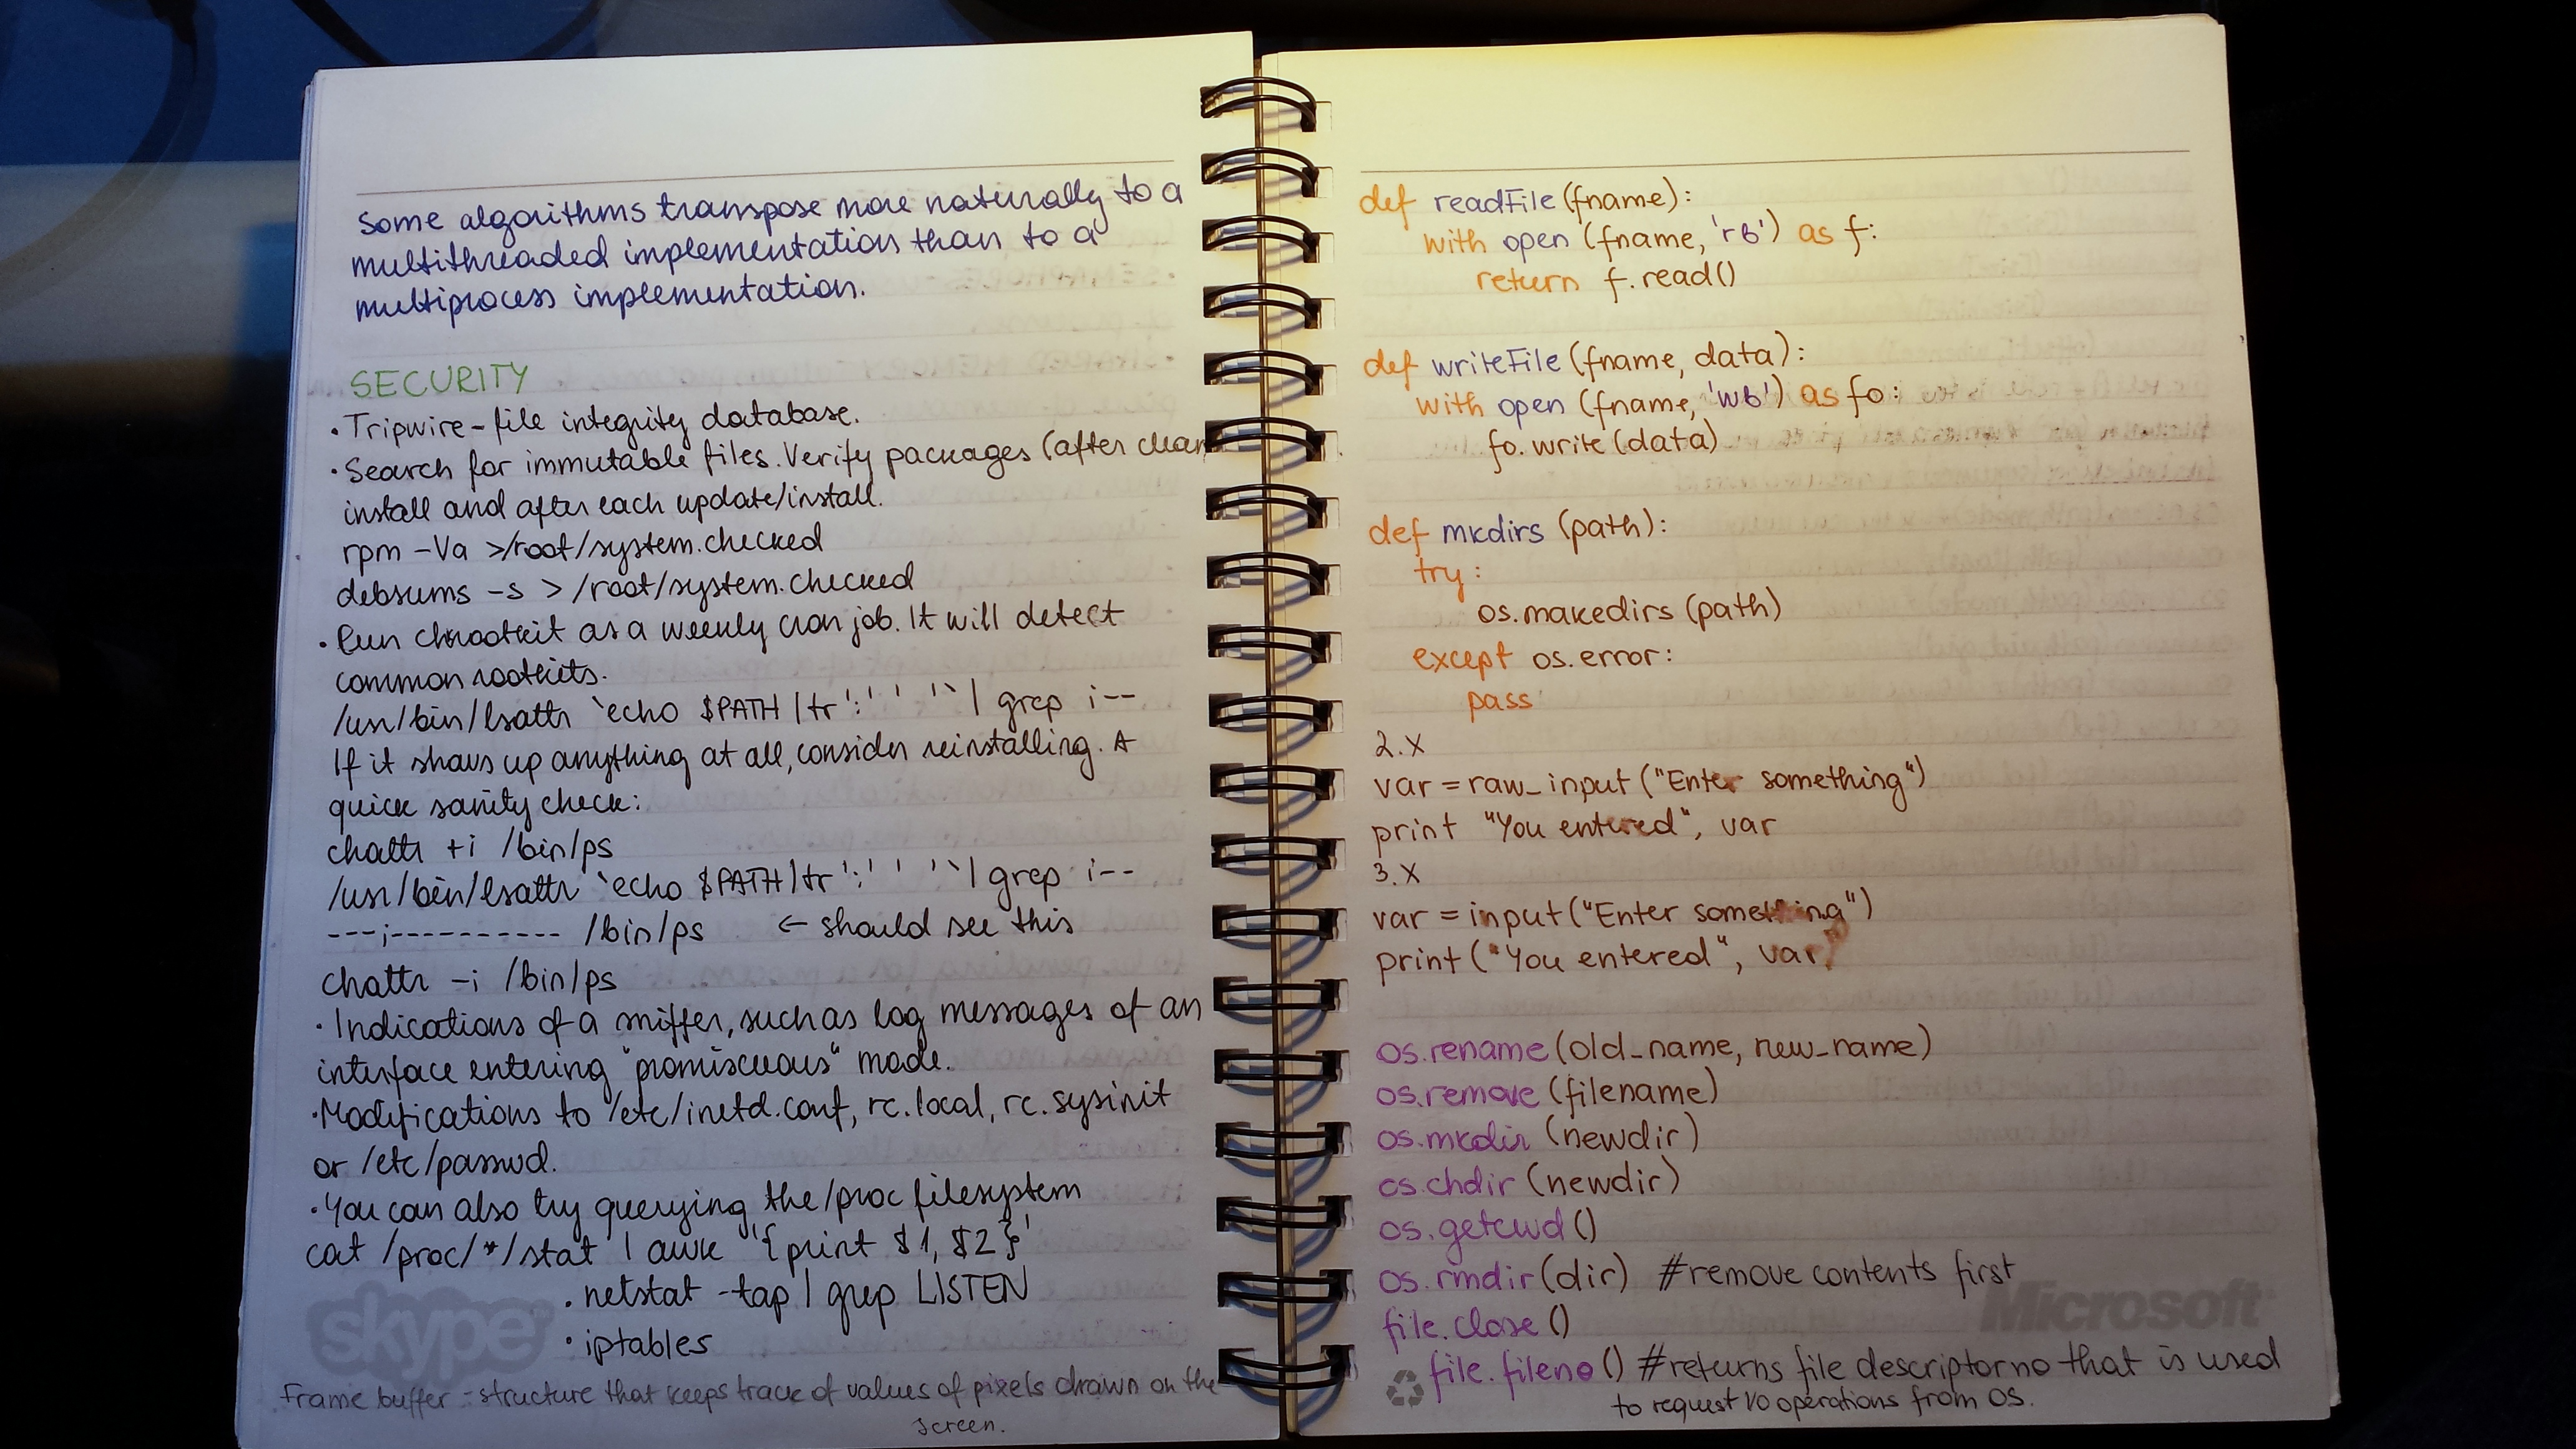 Some algorithms transpose more naturally to a
multithreaded implementation than to a
multiprocess implementation.
SECURITY
• Tripwire - file integrity database.
• Search for immutable files. Verify packages (after clean
install and after each update/install.
rpm -Va >/root/system.checked
debsums -s > /root/system.checked
• Run chkrootkit as a weekly cron job. It will detect
common rootkits.
/usr/bin/lsattr `echo $PATH | tr ':' ' '` | grep i--
If it shows up anything at all, consider reinstalling. A
quick sanity check:
chattr +i /bin/ps
/usr/bin/lsattr `echo $PATH | tr ':' ' '` | grep i--
---i---------- /bin/ps ← should see this
chattr -i /bin/ps
• Indications of a sniffer, such as log messages of an
interface entering "promiscuous" mode.
• Modifications to /etc/inetd.conf, rc.local, rc.sysinit
or /etc/passwd.
• You can also try querying the /proc filesystem
cat /proc/*/stat | awk '{print $1, $2}'
• netstat -tap | grep LISTEN
• iptables
skype
Frame buffer - structure that keeps track of values of pixels drawn on the
screen.
def readFile (fname):
with open (fname, 'rb') as f:
return f.read()
def writeFile (fname, data):
with open (fname, 'wb') as fo:
fo.write (data)
def mkdirs (path):
try:
os.makedirs (path)
except os.error:
pass
2.X
var = raw_input ("Enter something")
print "You entered", var
3.X
var = input ("Enter something")
print ("You entered", var)
os.rename (old_name, new_name)
os.remove (filename)
os.mkdir (newdir)
os.chdir (newdir)
os.getcwd ()
os.rmdir (dir) #remove contents first
Microsoft
file.close ()
file.fileno () #returns file descriptor no that is used
to request I/O operations from OS.